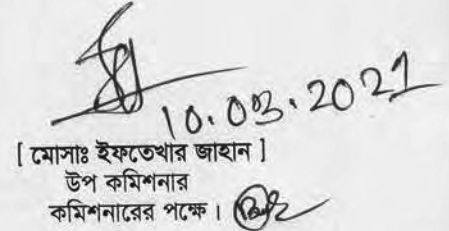 10.03.2021
[ মোসাঃ ইফতেখার জাহান ]
উপ কমিশনার
কমিশনারের পক্ষে।